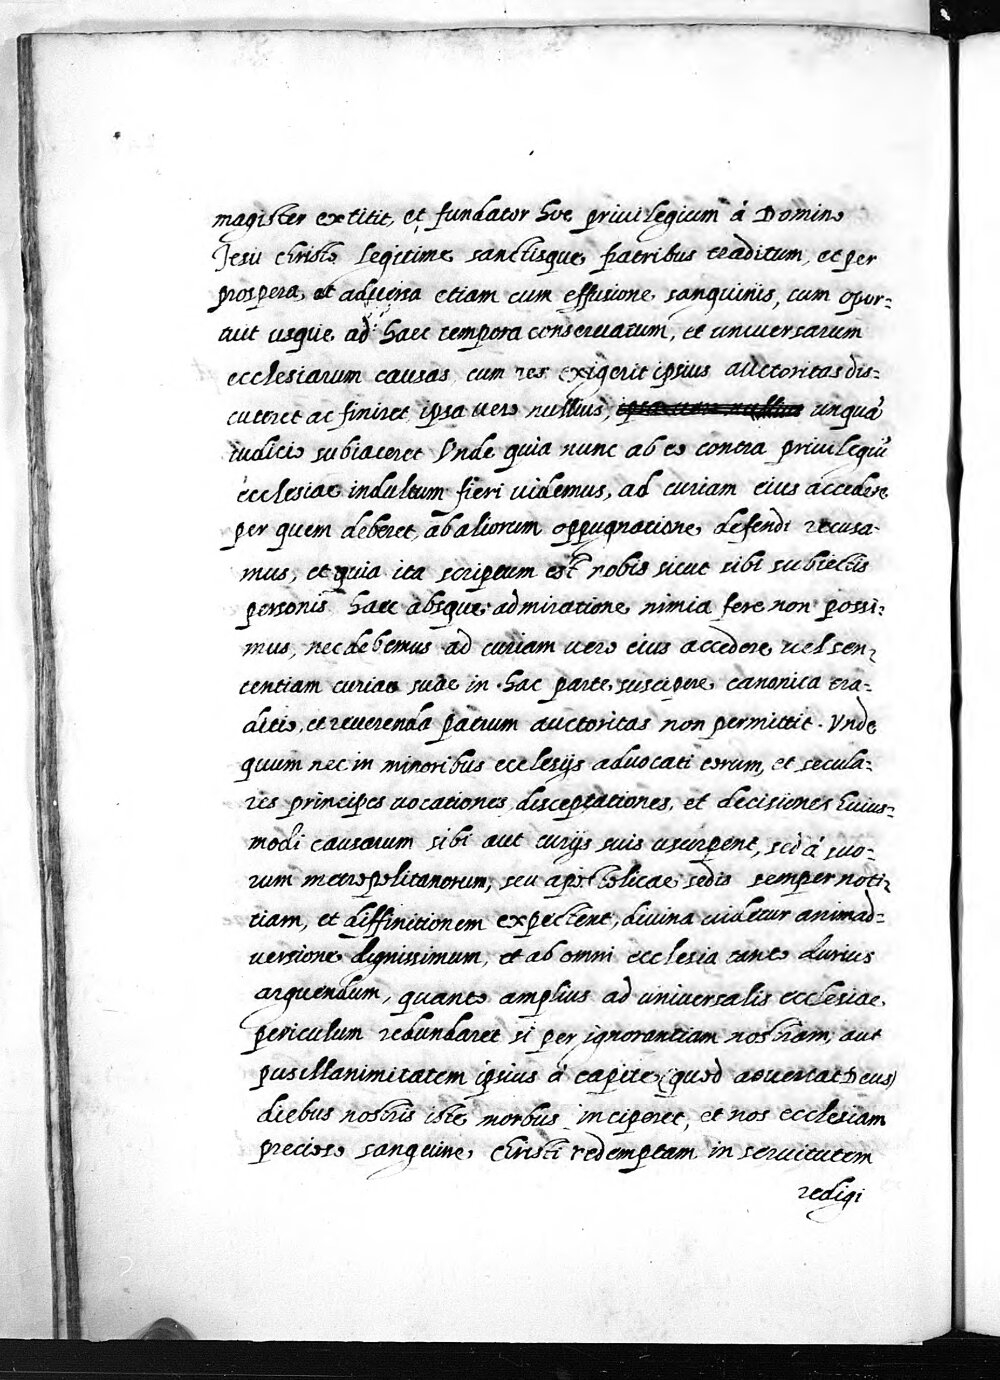 magister extitit, et fundator hoc privilegium á Domino
Jesu christo legitime sanctisque patribus traditum, et per
prospera, et adversa etiam cum effusione sanguinis, cum opor=
tuit usque ad haec tempora conservatum, et universarum
ecclesiarum causas cum res exigerit ipsius auctoritas dis=
cuteret ac finiret ipsa vero nullius, ipsa vero nullius unquã
iudicio subiaceret Vnde quia nunc ab eo contra privilegiũ
ecclesiae indultum fieri videmus, ad curiam eius accedere
per quem deberet, ab aliorum oppugnatione defendi recusa-
mus, et quia ita scriptum est nobis sicut sibi subiectis
personis haec absque admiratione nimia fere non possi=
mus, nec debemus ad curiam vero eius accedere vel sen=
tentiam curiae suae in hac parte suscipere canonica tra=
ditio, et reverenda patrum auctoritas non permittit. Vnde
quum nec in minoribus ecclesijs advocati eorum, et secula=
res principes vocationes disceptationes, et decisiones huius=
modi causarum sibi aut curijs suis usurpent, sed á suo=
rum metropolitanorum, seu apostolicae sedis semper noti=
tiam, et diffinitionem expectent, divina videtur animad=
versione dignissimum, et ab omni ecclesia tanto durius
arguendum, quanto amplius ad universalis ecclesiae
periculum redundaret si per ignorantiam nostram, aut
pusillanimitatem ipsius á capite (quod advertat Deus)
diebus nostris iste morbus inciperet, et nos ecclesiam
precioso sanguine christi redemptam in servitutem
redigi